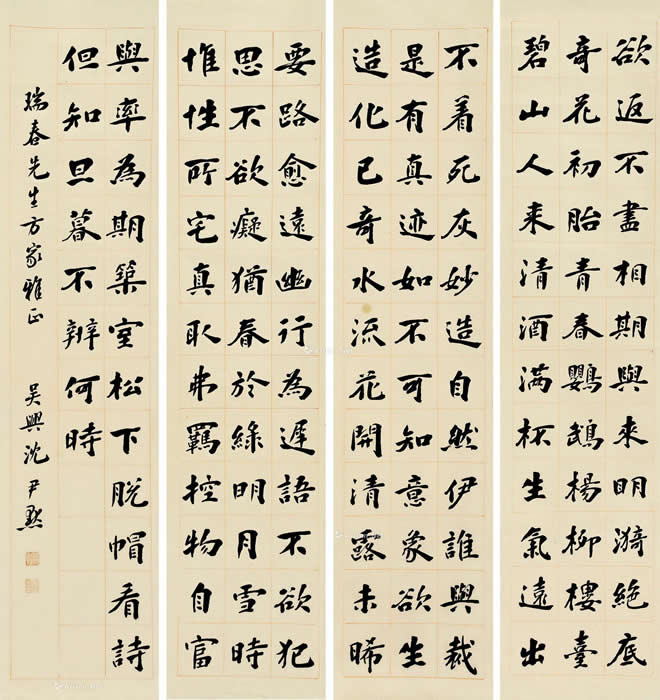 欲返不盡相期與来明漪絶底
奇花初胎青春鸚鵡楊柳樓臺
碧山人来清酒满杯生氣遠出
不着死灰妙造自然伊誰與裁
是有真迹如不可知意象欲生
造化已奇水流花開清露未晞
要路愈遠幽行為遲語不欲犯
思不欲癡猶春於綠明月雪時
惟性所宅真取弗羈控物自富
與率為期築室松下脱帽看詩
但知旦暮不辨何時
瑞春先生方家雅正 吳興沈尹默